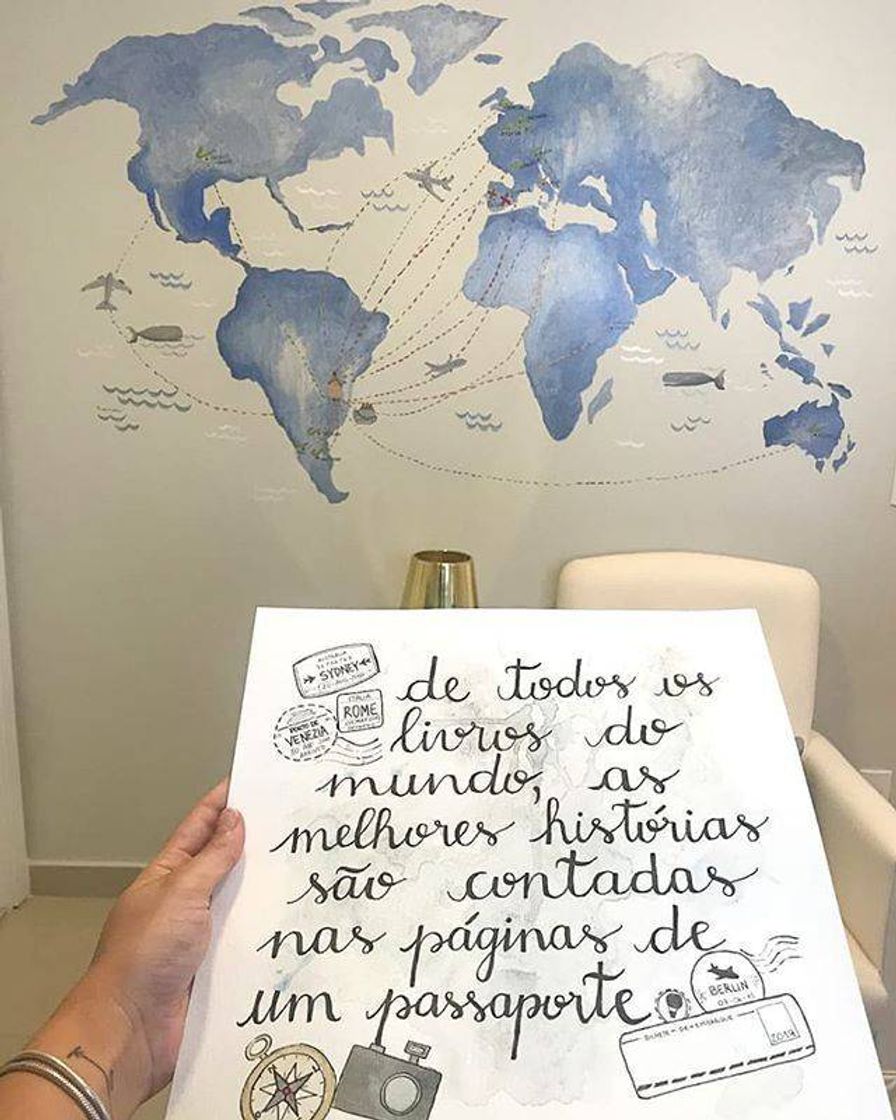 SYDNEY
ITALIA
ROME
VENEZIA
de todos os
livros do
mundo, as
melhores histórias
são contadas
nas páginas de
um passaporte
BERLIN
BILHETE DE EMBARQUE